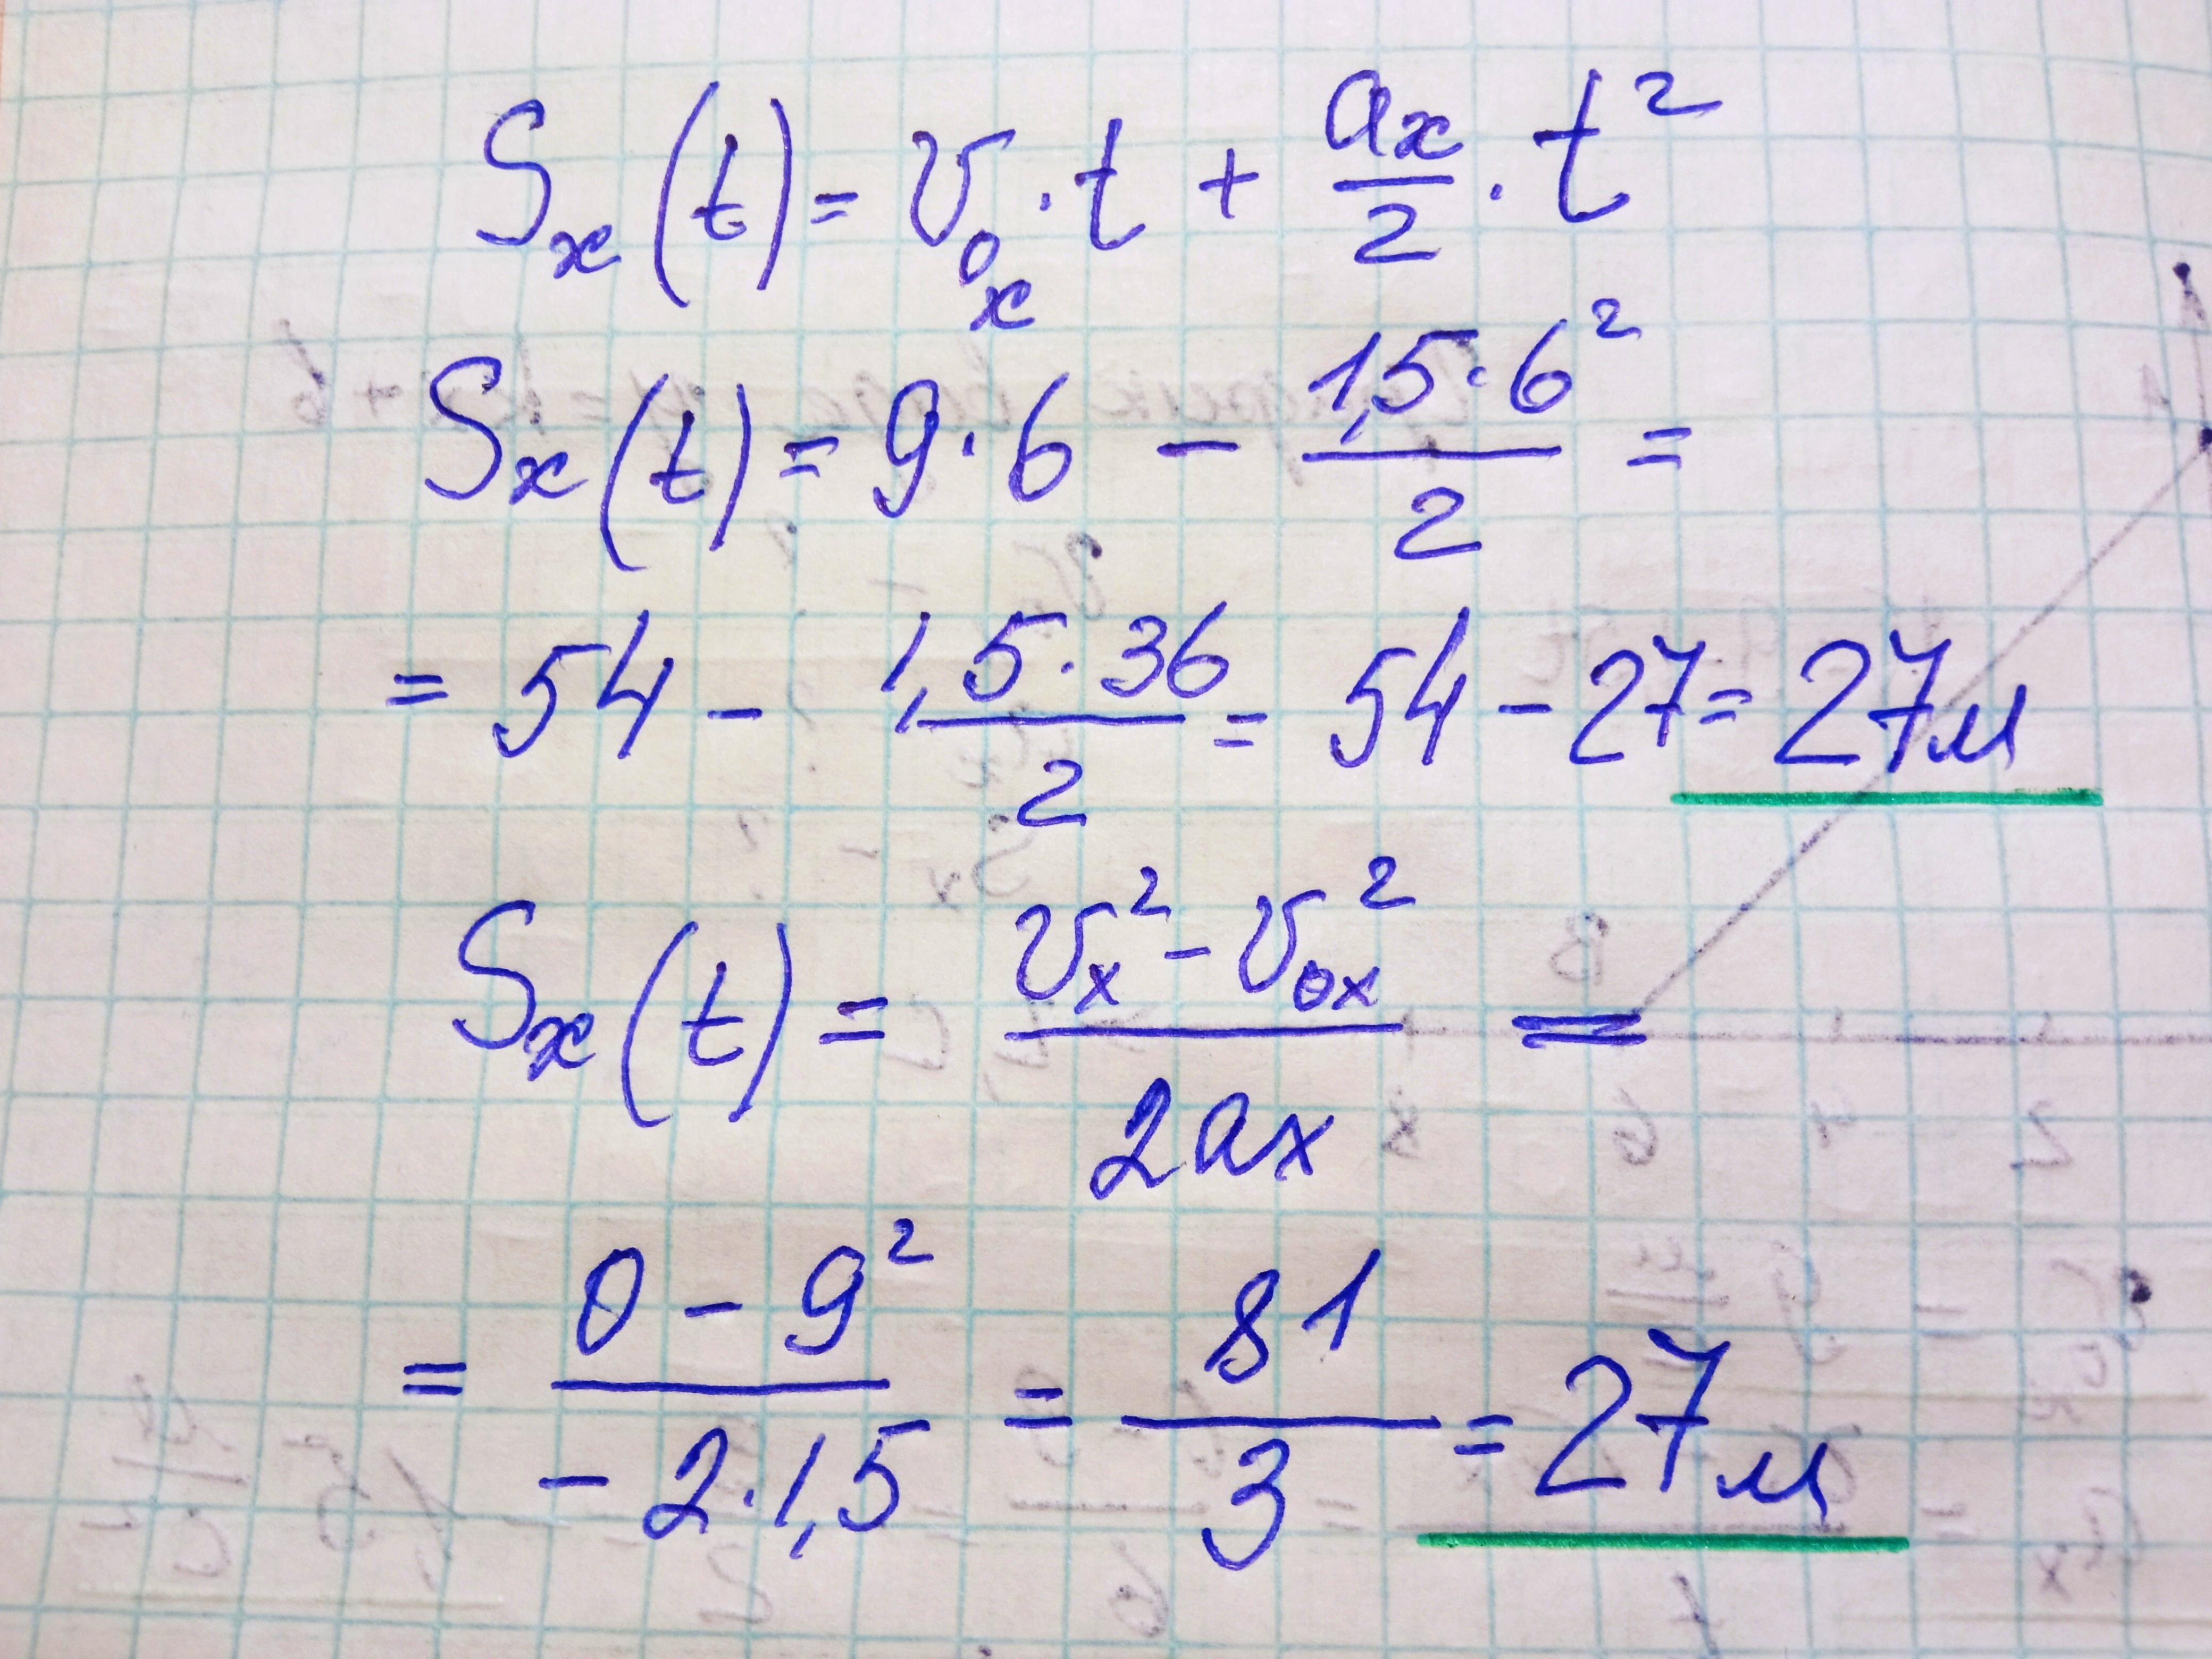 Sx(t) = v₀ₓ · t + aₓ/2 · t²
Sx(t) = 9 · 6 − 1,5 · 6²/2 =
= 54 − 1,5 · 36/2 = 54 − 27 = 27м
Sx(t) = (vₓ² − v₀ₓ²)/2aₓ =
= (0 − 9²)/(−2 · 1,5) = 81/3 = 27м